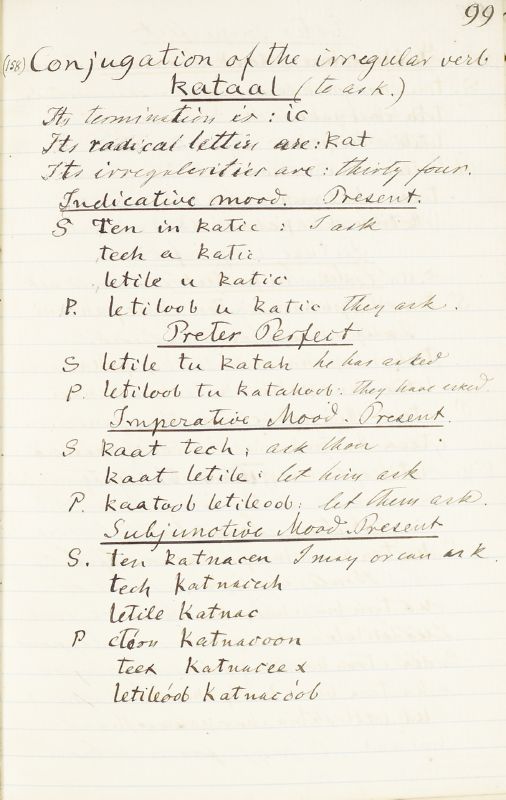 99
(158) Conjugation of the irregular verb
kataal (to ask.)
Its termination is : ic
Its radical letters are : kat
Its irregularities are : thirty four.
Indicative mood. Present.
S Ten in katic : I ask
tech a katic
letile u katic
P. letiloob u katic they ask.
Preter Perfect
S letile tu katah he has asked
P. letiloob tu katahoob. they have asked
Imperative Mood. Present.
S kaat tech ; ask thou
kaat letile : let him ask
P. kaatoob letileoob : let them ask.
Subjunctive Mood. Present
S. ten katnacen I may or can ask.
tech Katnacech
letile Katnac
P Katnacoon
teex Katnaceex
letileóob Katnacóob